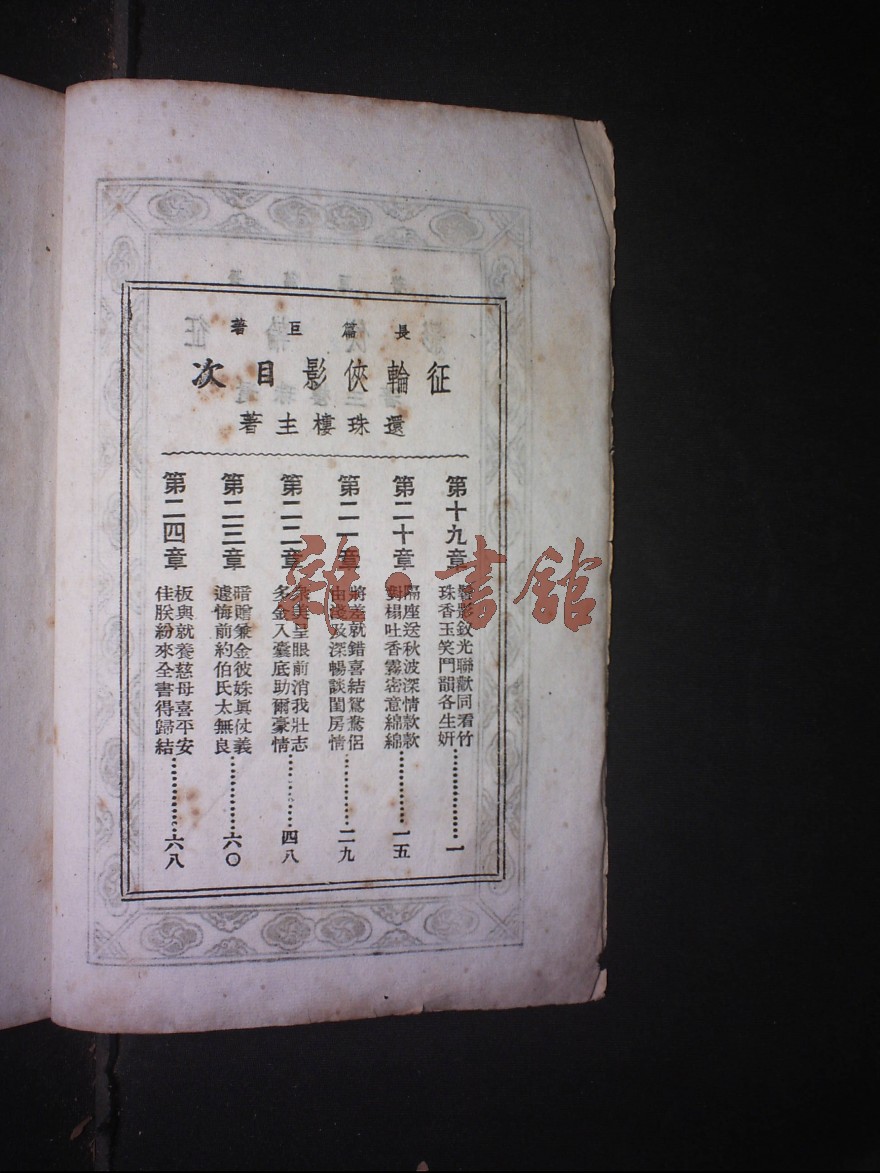 長篇巨著
征輪俠影目次
還珠樓主著
第十九章
鬢影釵光聯歡同看竹
珠香玉笑鬥韻各生妍………………一
第二十章
隔座送秋波深情款款
對榻吐香霧密意綿綿………………一五
第二一章
將差就錯喜結鴛鴦侶
由淺及深暢談閨房情………………二九
第二二章
衆美呈眼前消我壯志
多金入囊底助爾豪情………………四八
第二三章
暗贈兼金彼姝眞仗義
遽悔前約伯氏太無良………………六〇
第二四章
板輿就養慈母喜平安
佳朕紛來全書得歸結………………六八
雜·書館